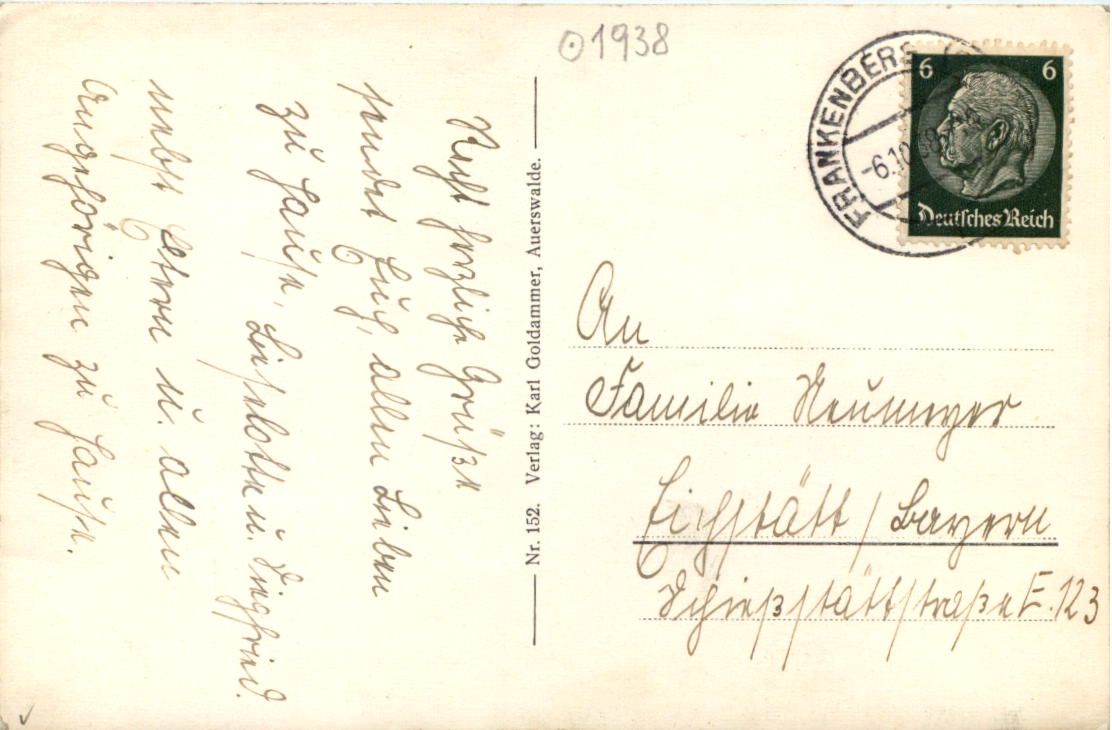 1938
FRANKENBERG
-6.10.38
6 6
Deutsches Reich
Recht herzliche Grüße
sendet Euch, allen Lieben
zu Hause, Lieselotte u. Siegfried.
nebst Eltern u. allen
Angehörigen zu Hause.
Nr. 152. Verlag: Karl Goldammer, Auerswalde.
An
Familie Neumeyer
Eichstätt / Bayern
Schießstättstraße E. 123